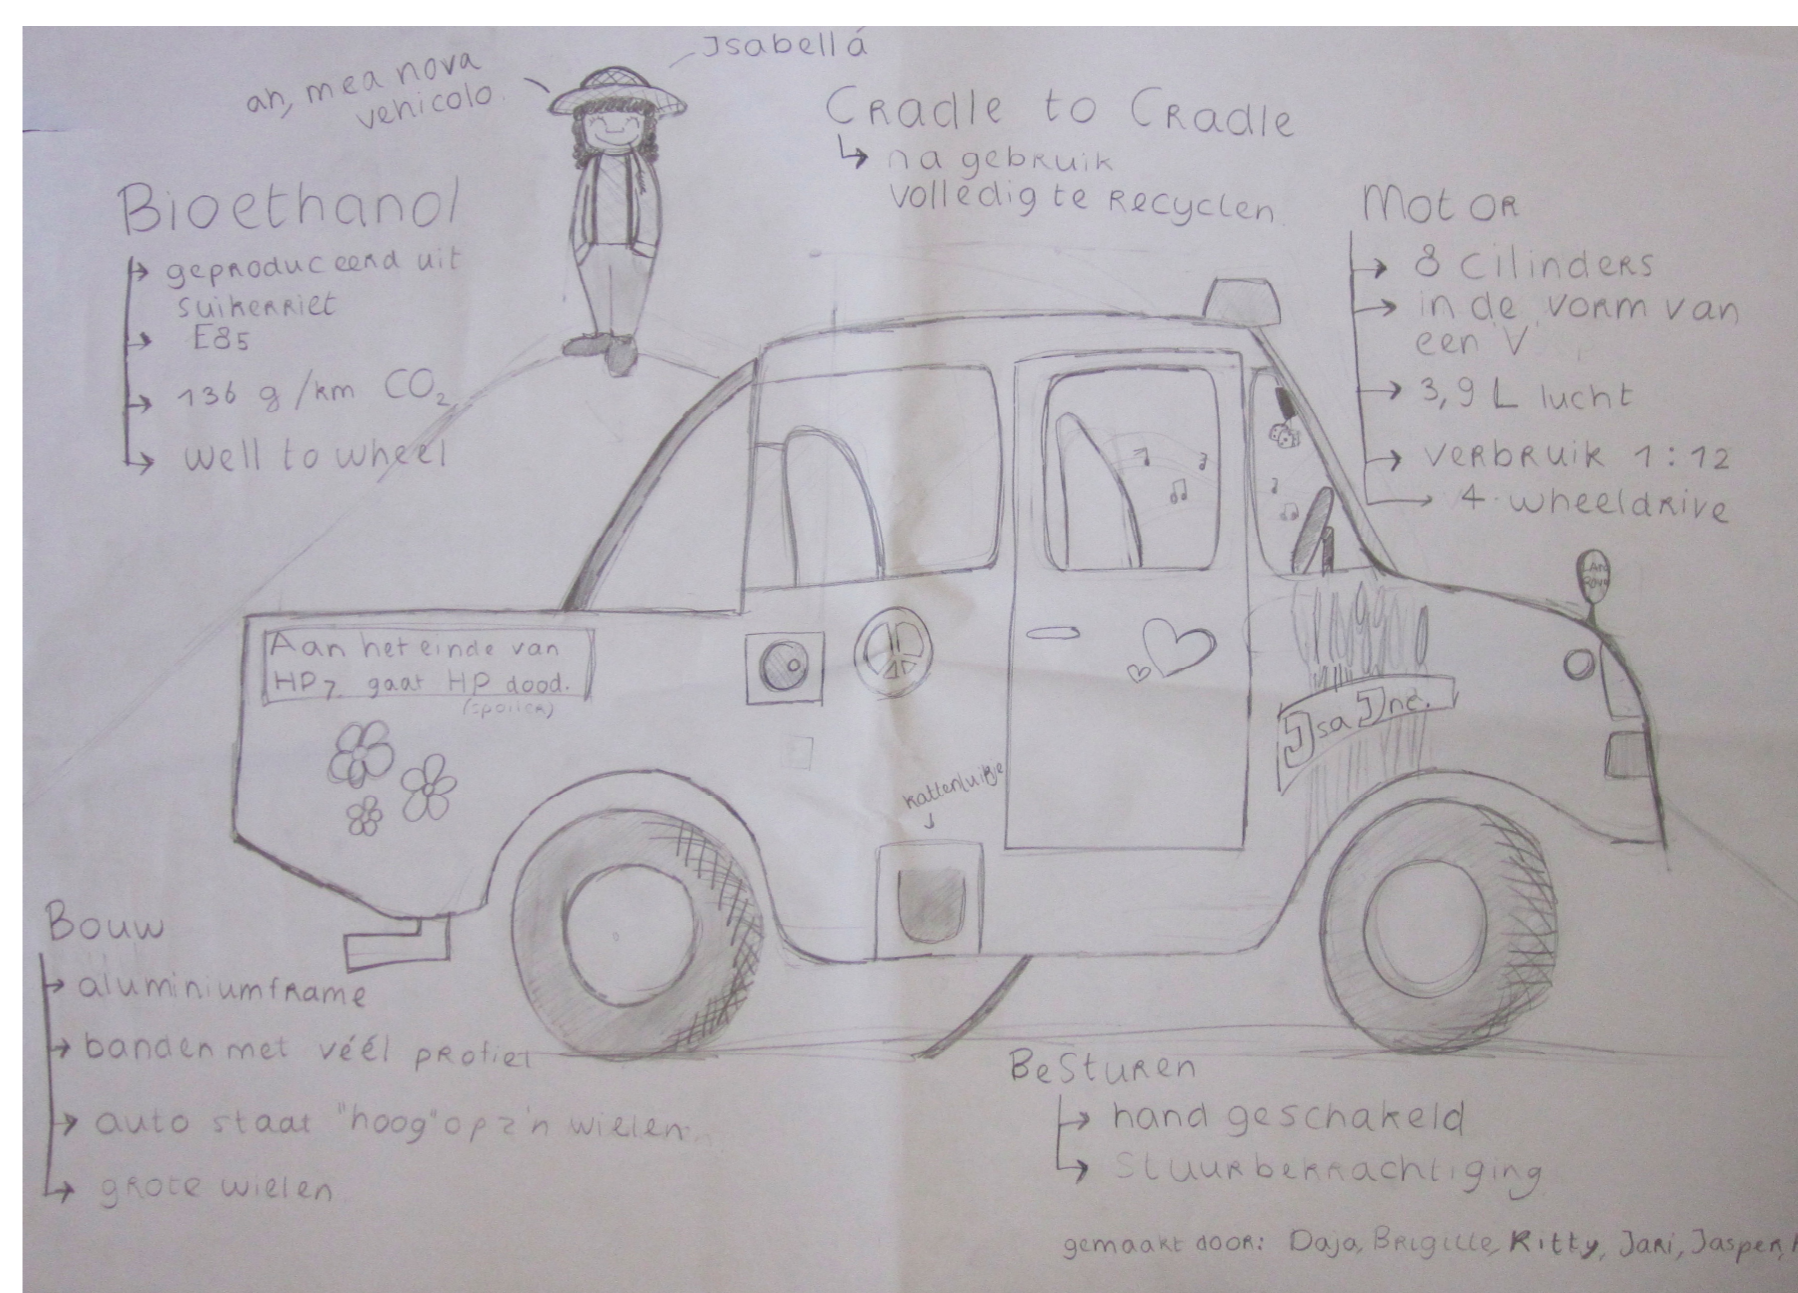 Isabellá
ah, mea nova
vehicolo.
Cradle to Cradle
na gebruik
volledig te recyclen
Bioethanol
geproduceerd uit
suikerriet
E85
136 g/km CO₂
well to wheel
Motor
8 cilinders
in de vorm van
een 'V'
3,9 L lucht
verbruik 1:12
4-wheeldrive
LAND
ROVER
Aan het einde van
HP7 gaat HP dood.
(spoiler)
Isa Inc.
kattenluikje
Bouw
aluminiumframe
banden met véél profiel
auto staat "hoog" op z'n wielen
grote wielen
Besturen
hand geschakeld
Stuurbekrachtiging
gemaakt door: Daja, Brigitte, Kitty, Jari, Jasper,